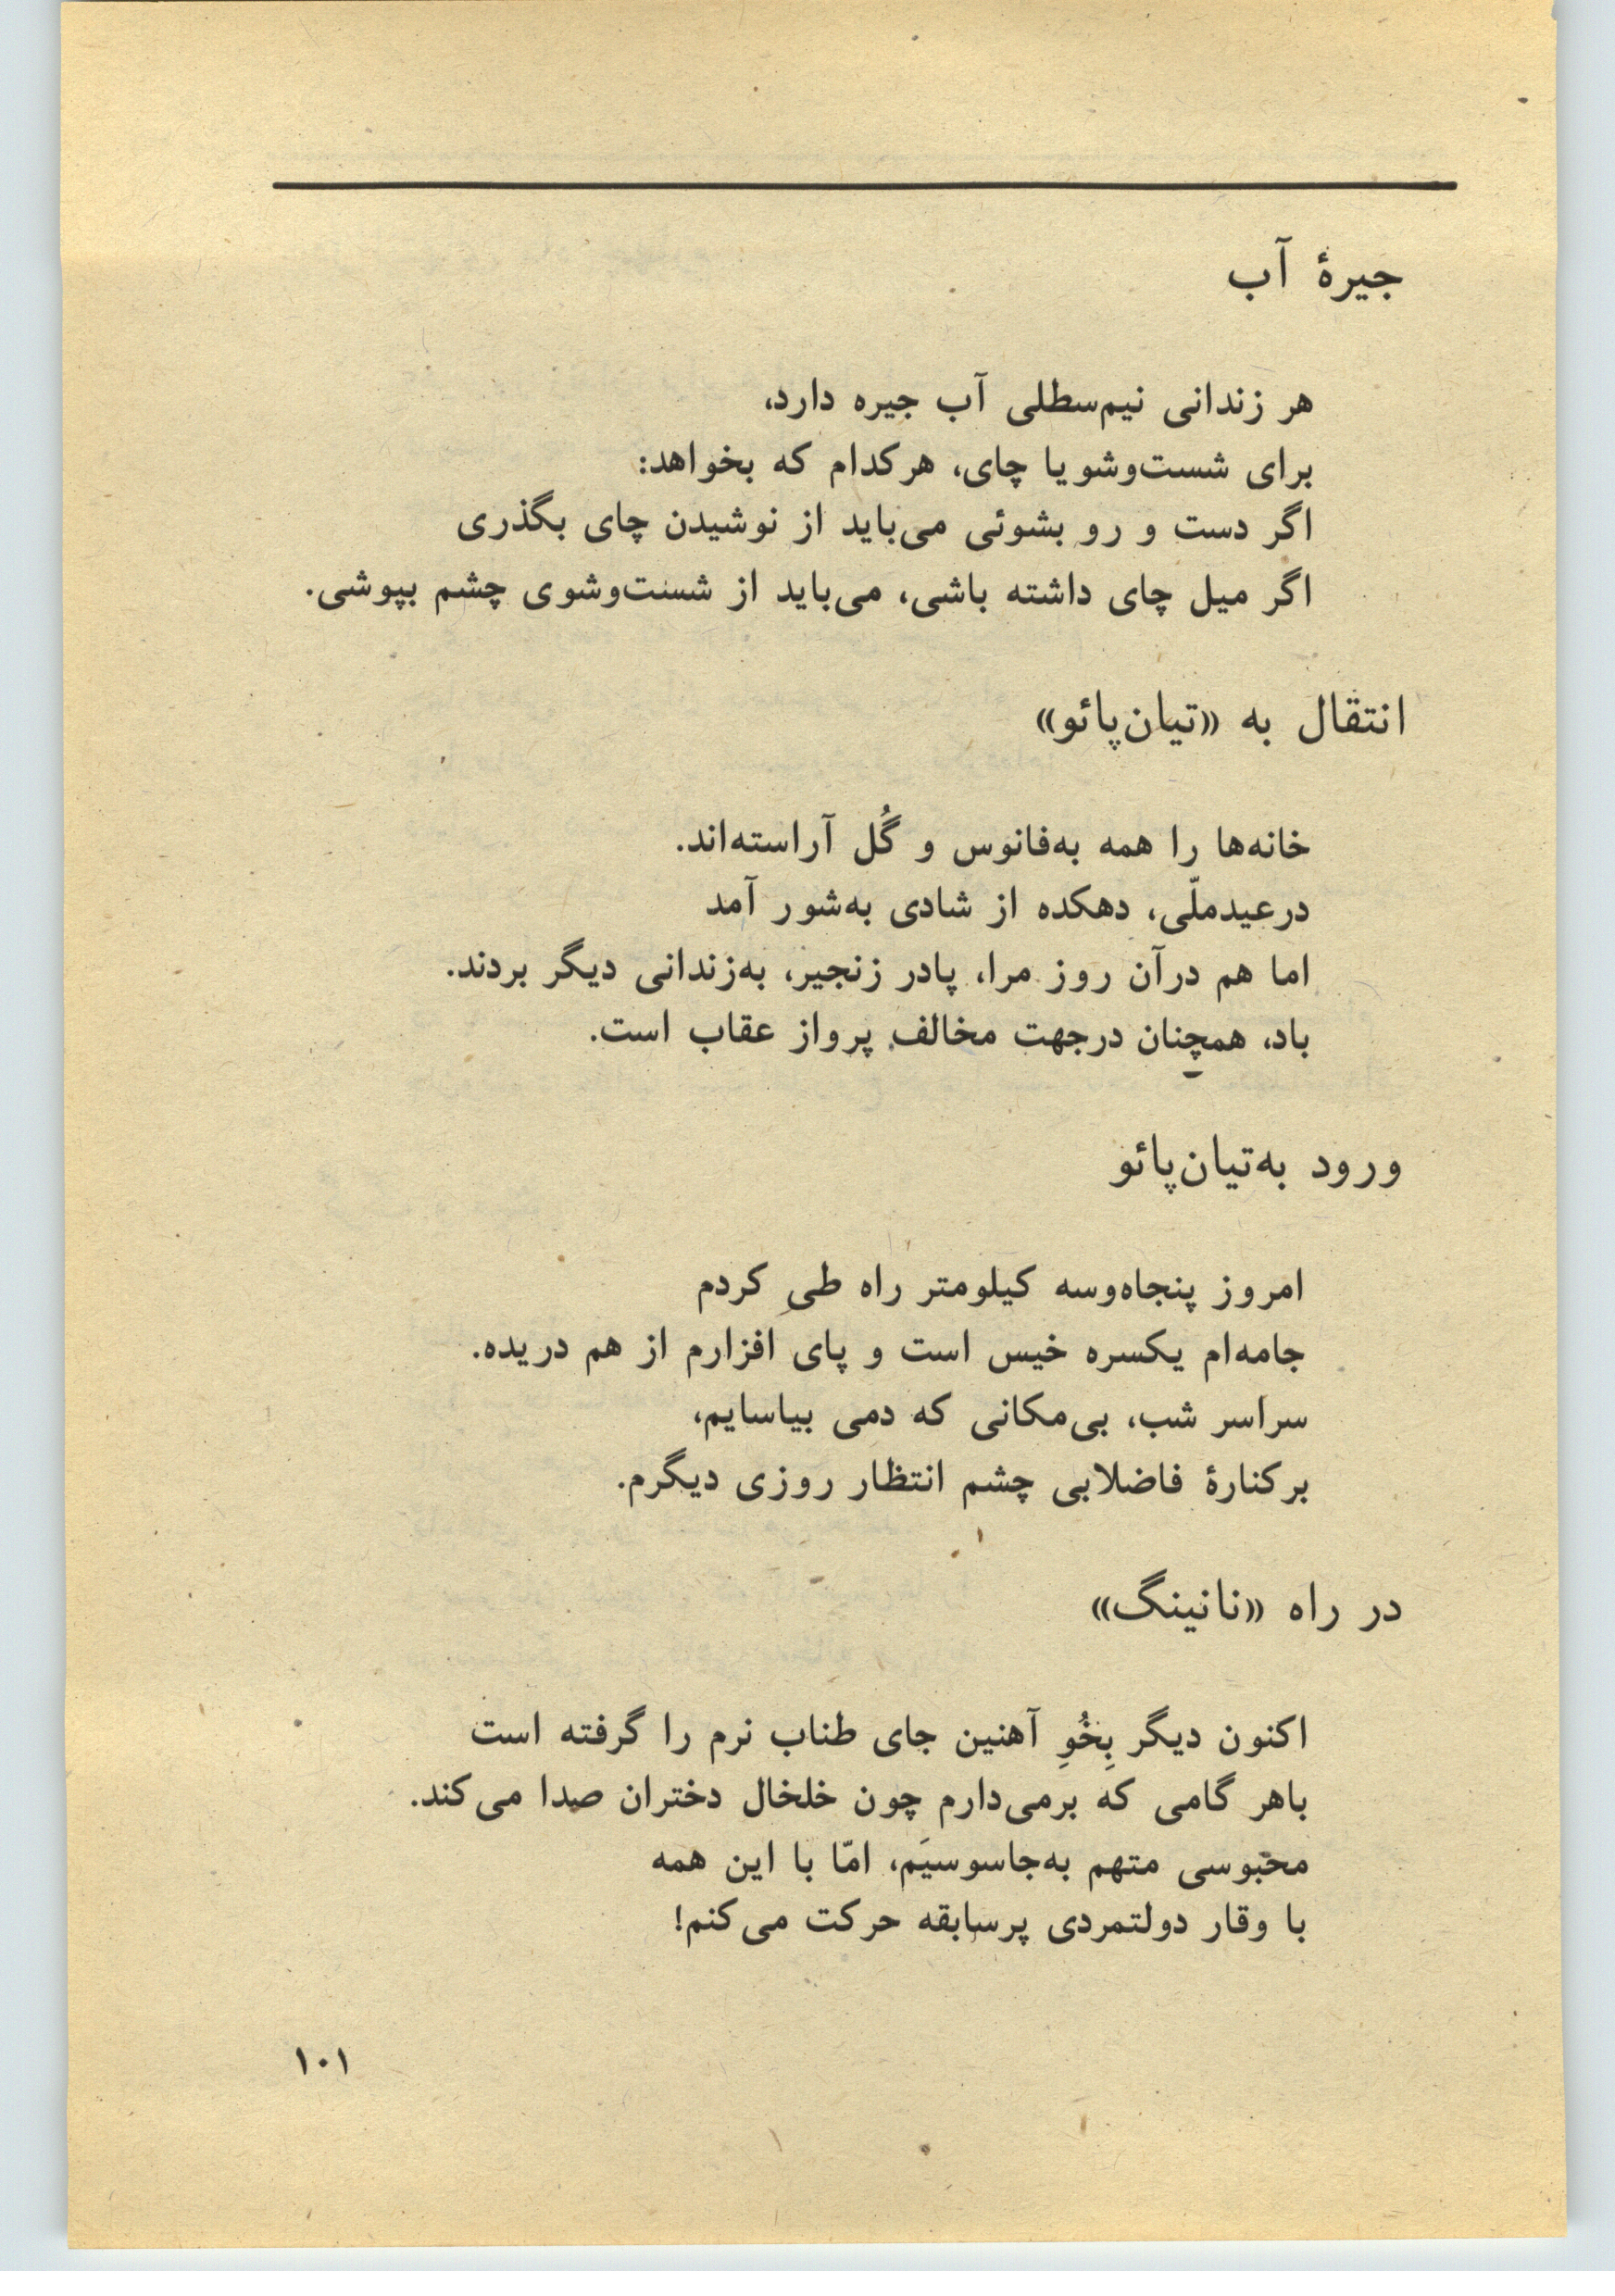 جیرهٔ آب
هر زندانی نیم‌سطلی آب جیره دارد،
برای شست‌وشو یا چای، هرکدام که بخواهد:
اگر دست و رو بشوئی می‌باید از نوشیدن چای بگذری
اگر میل چای داشته باشی، می‌باید از شست‌وشوی چشم بپوشی.
انتقال به «تیان‌پائو»
خانه‌ها را همه به‌فانوس و گُل آراسته‌اند.
درعیدملّی، دهکده از شادی به‌شور آمد
اما هم درآن روز مرا، پادر زنجیر، به‌زندانی دیگر بردند.
باد، همچنان درجهت مخالف پرواز عقاب است.
ورود به‌تیان‌پائو
امروز پنجاه‌وسه کیلومتر راه طیِ کردم
جامه‌ام یکسره خیس است و پای افزارم از هم دریده.
سراسر شب، بی‌مکانی که دمی بیاسایم،
برکنارهٔ فاضلابی چشم انتظار روزی دیگرم.
در راه «نانینگ»
اکنون دیگر بِخُوِ آهنین جای طناب نرم را گرفته است
باهر گامی که برمی‌دارم چون خلخال دختران صدا می‌کند.
محبوسی متهم به‌جاسوسیَم، امّا با این همه
با وقار دولتمردی پرسابقه حرکت می‌کنم!
۱۰۱